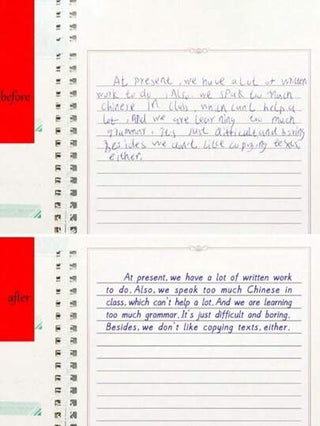 before
At present, we have a lot of written
work to do. Also, we speak too much
Chinese in club, which can't help a
lot. And we are learning too much
grammar. It's just difficult and boring
Besides we don't like copying texts
either.
after
At present, we have a lot of written work
to do. Also, we speak too much Chinese in
class, which can't help a lot. And we are learning
too much grammar. It's just difficult and boring.
Besides, we don't like copying texts, either.